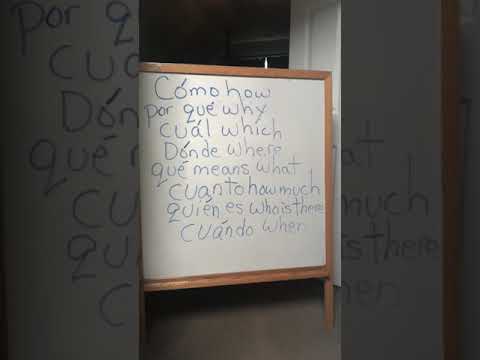 Cómo how
por qué why
cuál which
Dónde where
qué means what
cuanto how much
quién es who is there
cuándo when